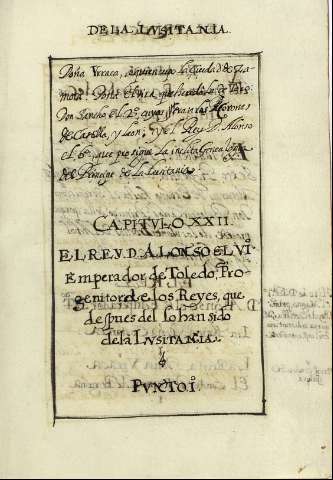 DE LA LUSITANIA.
Doña Urraca, a quien cupo la Ciudad de Za-
mora. Doña Elvira, que heredo la de Toro.
Don Sancho el 2º, cuyas fueran las Coronas
de Castilla, y Leon; y el Rey D. Alonso
el 6º, que prosigue la inclita Genealogia
del Principe de la Lusitania.
CAPITULO XXII.
EL REY D. ALONSO EL VIº
Emperador de Toledo, Pro-
genitor de los Reyes, que
despues del lo han sido
de la LUSITANIA.
PUNTO Iº